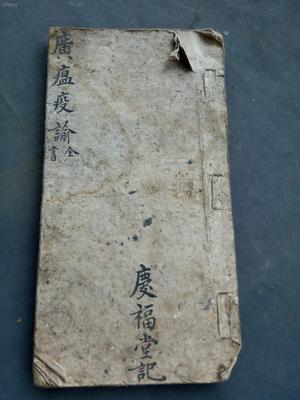 廣瘟疫諭全書
慶福堂記